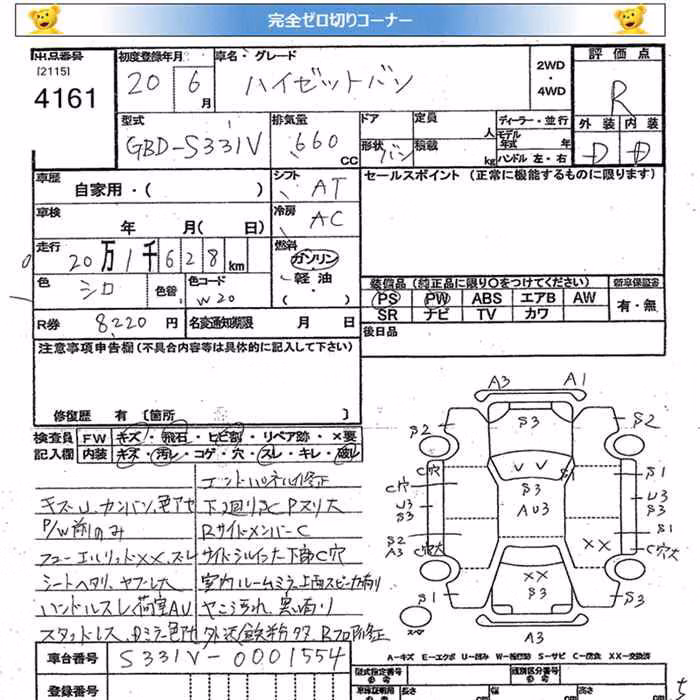 完全ゼロ切りコーナー
出品番号 初度登録年月 車名・グレード 2WD ・ 4WD 評価点
[2115]
4161 20 6月 ハイゼットバン R
型式 排気量 ドア 定員 人 ディーラー・並行 外装 内装
GBD-S331V 660 CC 形状 バン 積載 kg モデル年式 年 ハンドル 左・右 D D
車歴 自家用・( ) シフト AT セールスポイント (正常に機能するものに限ります)
車検 年 月( 日) 冷房 AC
走行 20万1千628km 燃料 ガソリン・軽油・( )
色 シロ 色替 色コード W20
装備品(純正品に限り○をつけてください) 新車保証書
PS PW ABS エアB AW 有・無
SR ナビ TV カワ
R券 8220円 名変通知期限 月 日 後日品
注意事項申告欄(不具合内容等は具体的に記入して下さい)
修復歴 有 [箇所 ]
検査員 FW キズ・飛石・ヒビ部・リペア跡・×要
記入欄 内装 キズ・汚レ・コゲ・穴・スレ・キレ・破レ
エンドパネル修正
キズU、カンバン、色アセ 下回りサC Pスリ大
P/W前のみ RサイドメンバーC
フューエルリッドXX、スレ サイドシルインナー下部C穴
シートヘタリ、ヤブレ大 室内ルームミラー上面スピーカ有り
ハンドルスレ 荷室AU ヤニ汚れ、臭い有り
スタッドレス、Dミラー色アセ 外装鉄粉タタ、Rフロア修正
A3 A1
S3
S2 S2
U U S1
C穴 S1
C穴 S3 U3
U3 AU3 S3
S3
S2 S1
A3 C穴大 XX C穴大
XX
S3
S1 S3
スペア A3
A=キズ E=エクボ U=凹み W=補修跡 S=サビ C=腐食 XX=交換済
車台番号 S331V-0001554 型式指定番号 参考 類別区分番号 参考
登録番号 長さ 幅 高さ